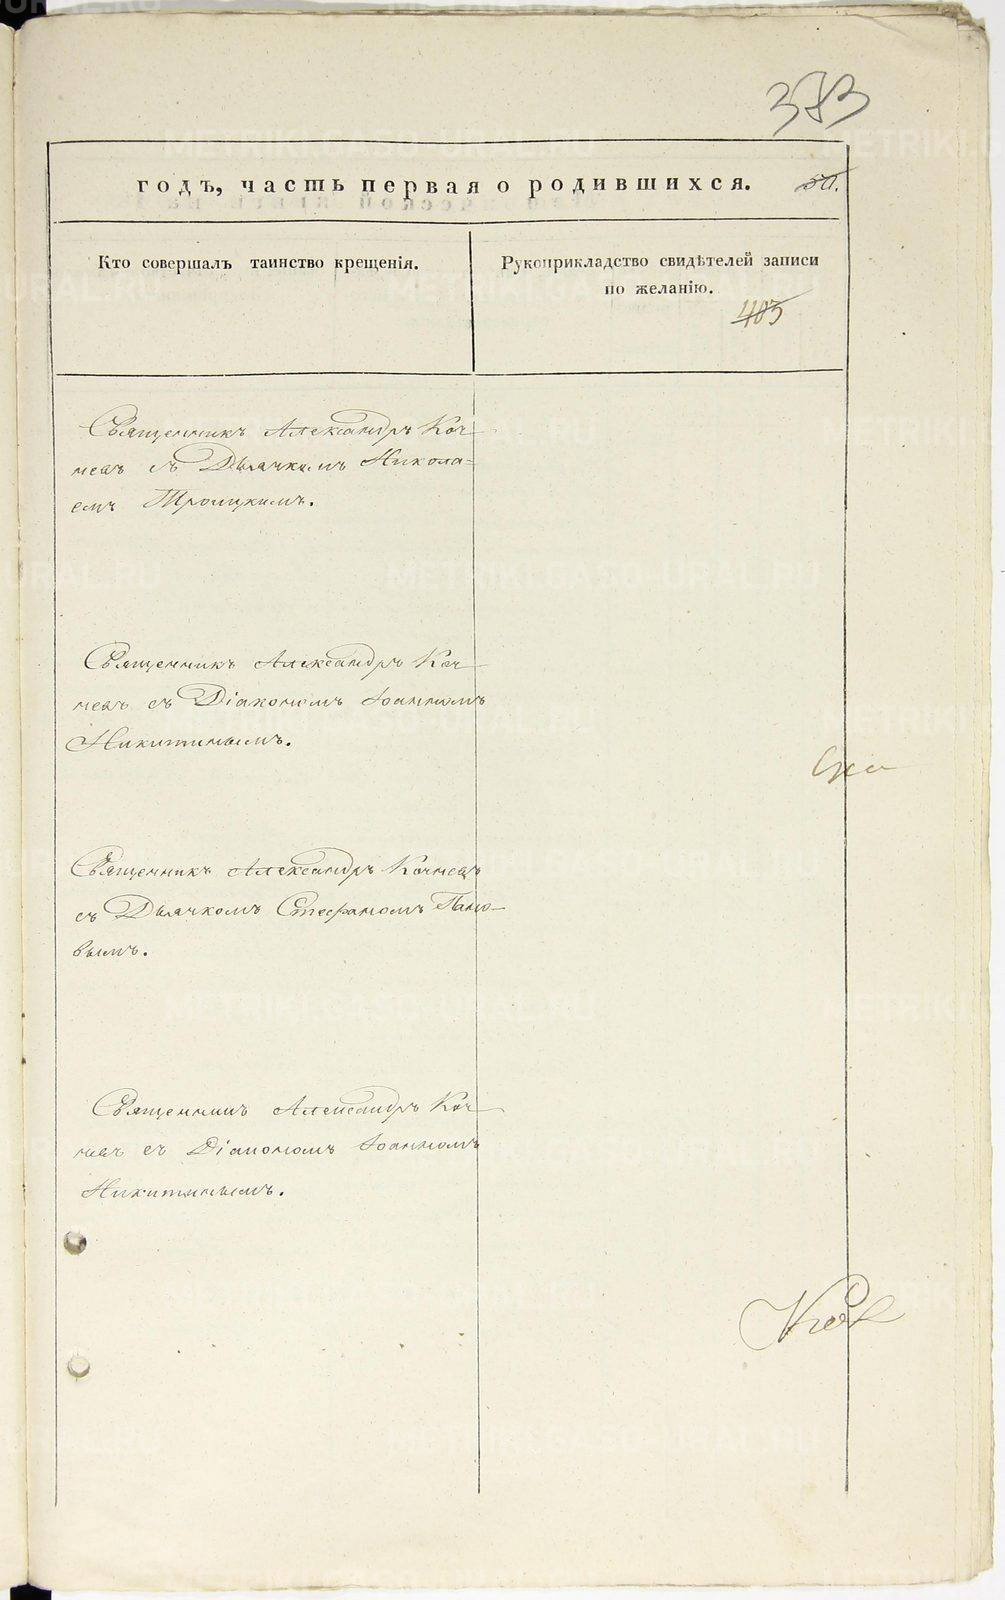 383
годъ, часть первая о родившихся.
50.
Кто совершалъ таинство крещенія.
Рукоприкладство свидѣтелей записи
по желанію.
403
Священникъ Александръ Коч-
невъ съ Дьячкомъ Никола=
емъ Троицкимъ.
Священникъ Александръ Коч-
невъ съ Діакономъ Іоанномъ
Никитинымъ.
Священникъ Александръ Кочневъ
съ Дьячкомъ Стефаномъ Пано-
вымъ.
Священникъ Александръ Коч-
невъ съ Діакономъ Іоанномъ
Никитинымъ.
METRIKI.GASO-URAL.RU